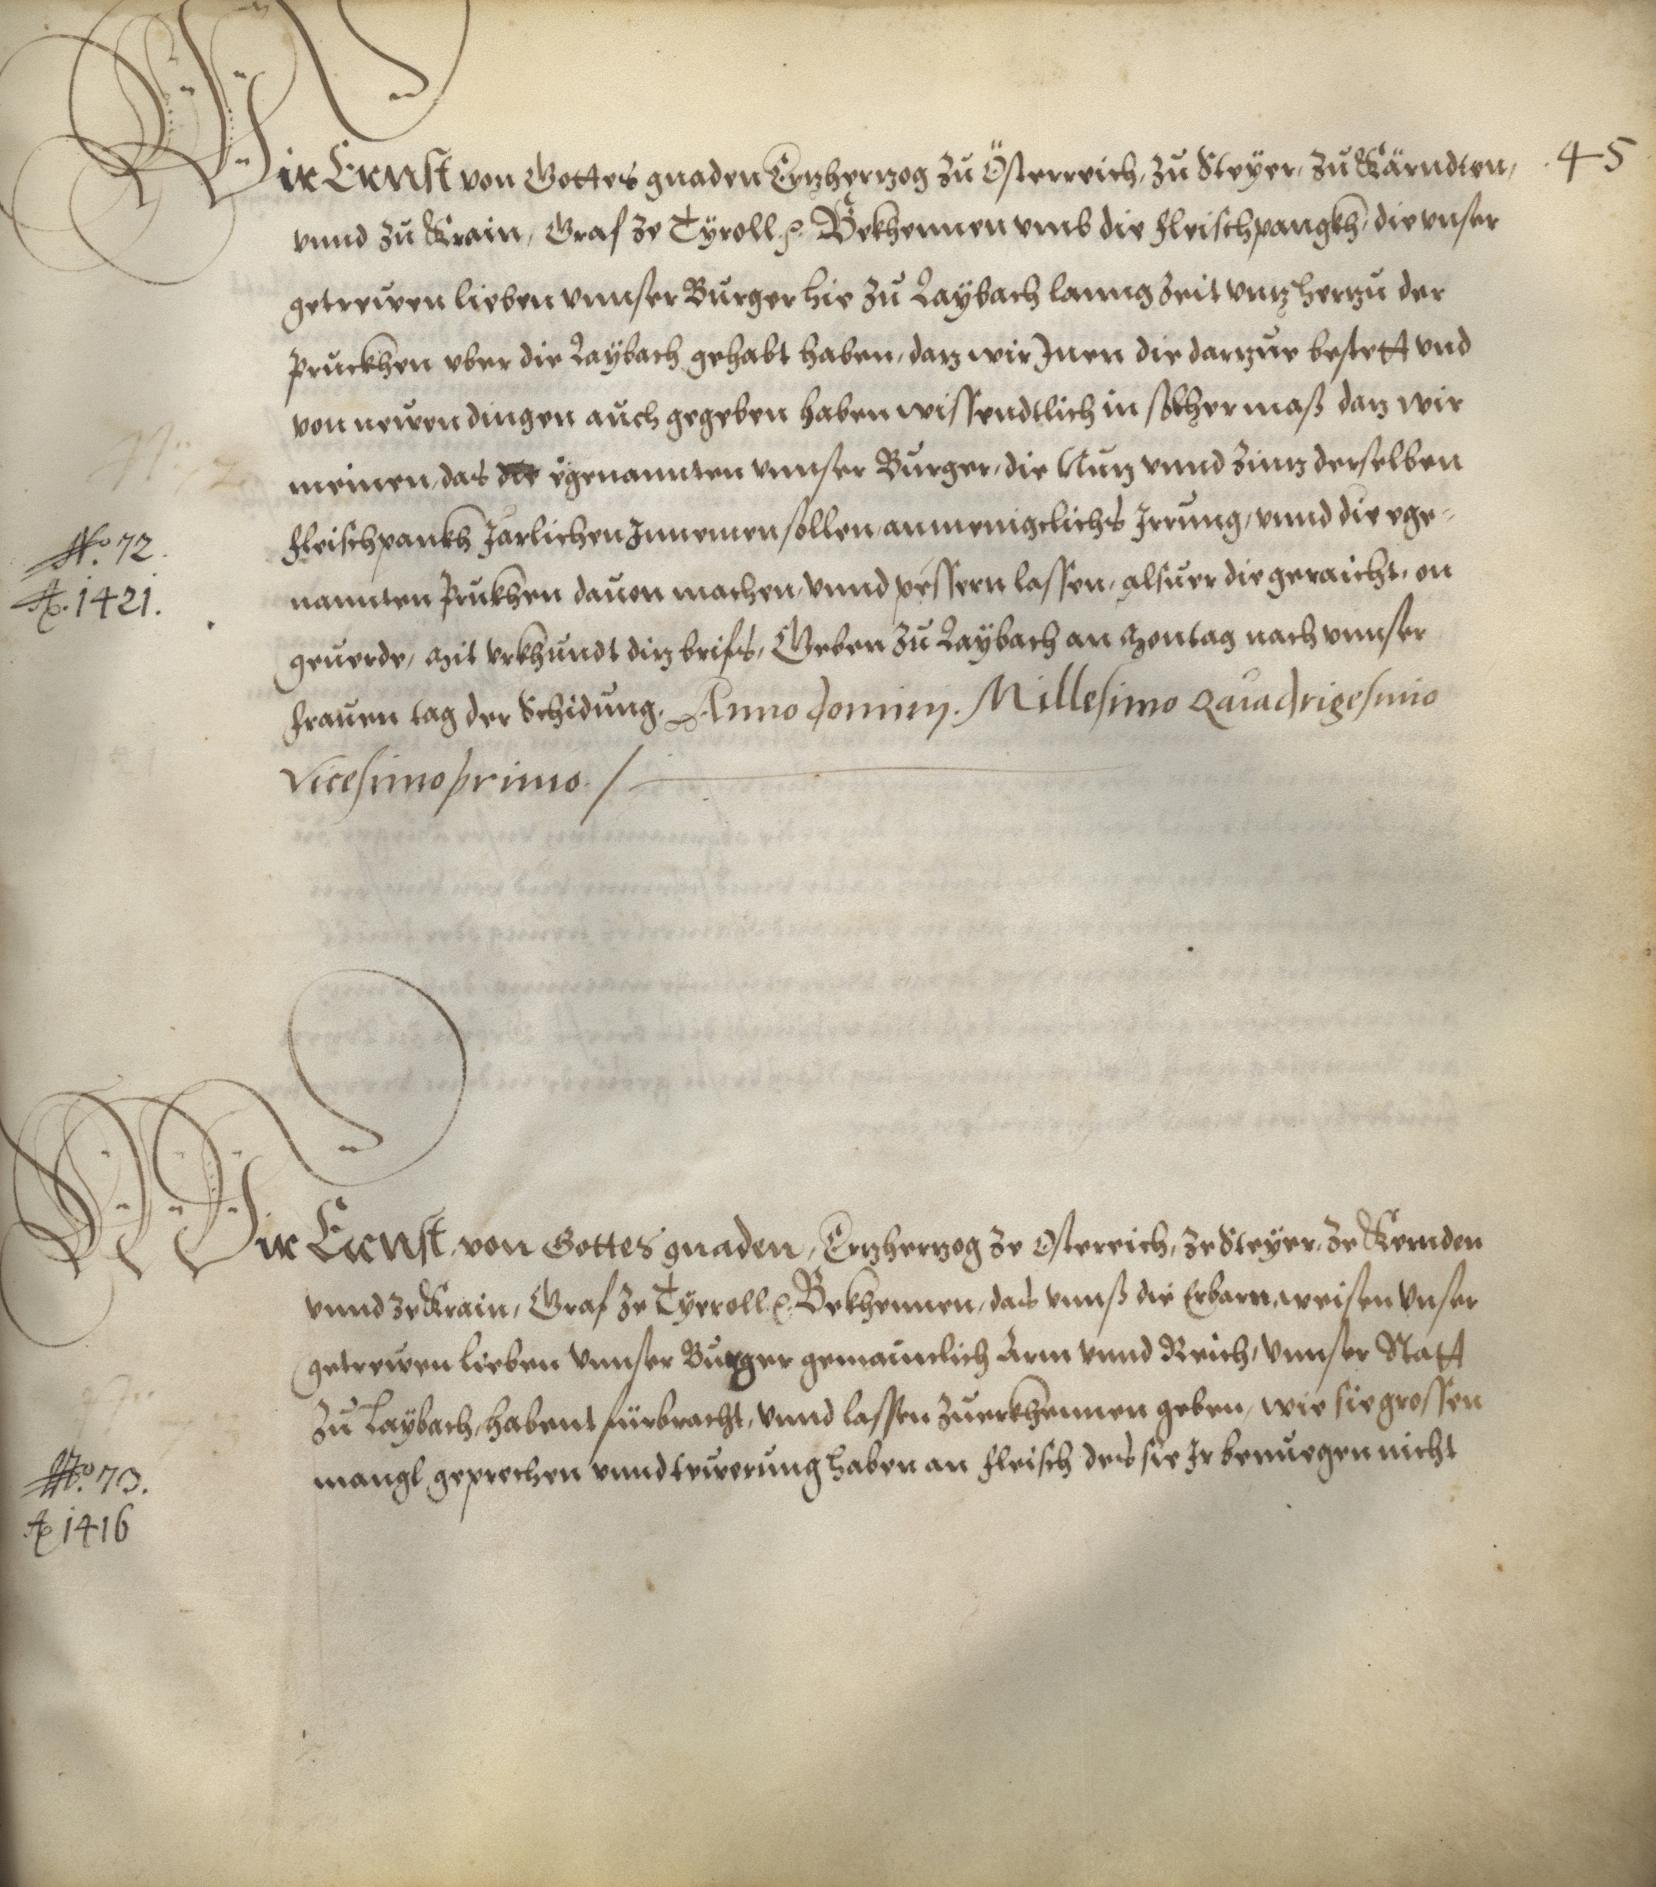 45
Wir Ernst von Gottes gnaden Ertzhertzog zu Österreich, zu Steÿer, zu Kärndten,
vnnd zu Krain, Graf ze Tÿroll &c. Bekhennen vmb die fleischpangkh, die vnser
getrewen lieben vnnser Burger hie zu Laÿbach lanng zeit vntz hertzu der
Pruckhen vber die Laÿbach gehabt haben, datz wir Inen die dartzue bestett vnd
von newen dingen auch gegeben haben wissendtlich in solher maß datz wir
meinen, das die egenannten vnnser Burger, die Nutz vnnd Zinntz derselben
fleischpankh Jarlichen Innemen sollen, an menigclichs Irrung, vnnd die ege-
nannten Prukhen dauon machen, vnnd pessern lassen, alsuer die geraicht, on
geuerde, Mit vrkhundt ditz briefs, Geben zu Laÿbach an Montag nach vnnser
frauen tag der Schidung. Anno Dominj. Millesimo Quadrigesimo
Vicesimoprimo. /
No. 72.
Ao. 1421.
Wir Ernst, von Gottes gnaden, Ertzhertzog ze Osterreich, ze Steÿer, ze Kernden
vnnd ze Krain, Graf ze Tÿeroll &c. Bekhennen, das vnnß die Erbarn, weisen vnser
getrewen lieben vnnser Burger gemainclich Arm vnnd Reich, vnnser Statt
zu Laÿbach, habent fürbracht, vnnd lassen zuerkhennen geben, wie sie grossen
mangl geprechen vnnd tewerung haben an fleisch des sie Ir benuegen nicht
No. 73.
Ao 1416